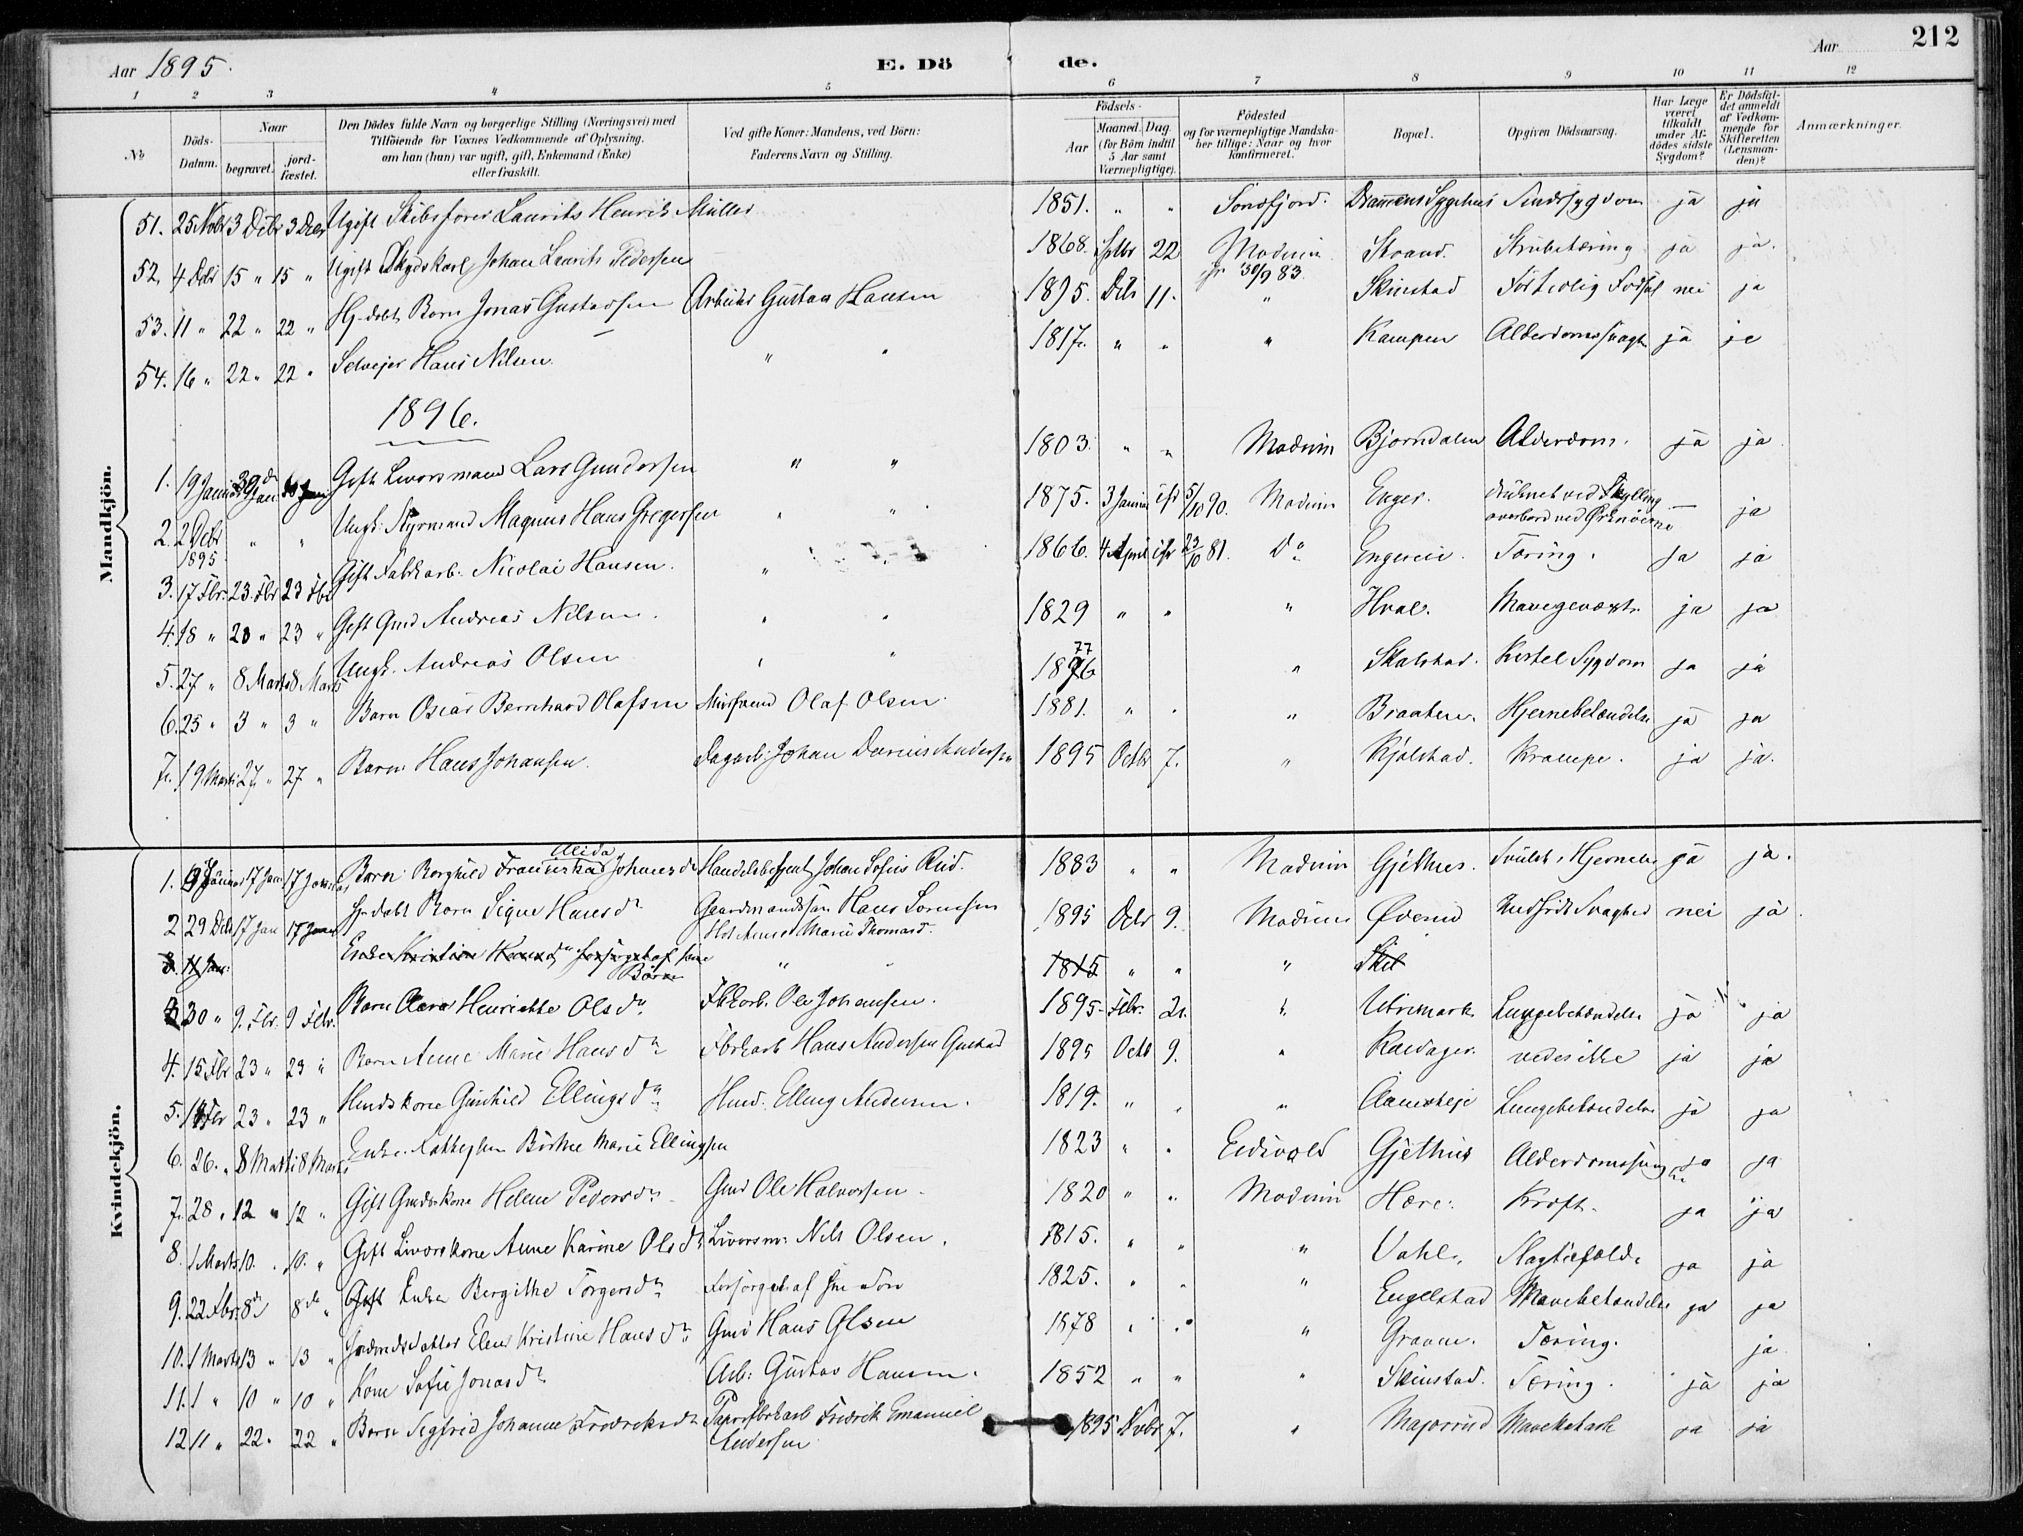 212
Aar 1895.
E. Dö de.
Aar
1 2 3 4 5 6 7 8 9 10 11 12
No
Döds-Datum.
Naar
begravet.
jord-fæstet.
Den Dödes fulde Navn og borgerlige Stilling (Næringsvei) med
Tilföiende for Voxnes Vedkommende af Oplysning.
om han (hun) var ugift, gift, Enkemand (Enke)
eller fraskilt.
Ved gifte Koner: Mandens, ved Börn:
Faderens Navn og Stilling.
Födsels-
Aar
Maaned. Dag.
(for Börn indtil
5 Aar samt
Værnepligtige).
Födested
og for værnepligtige Mandska-
ber tillige: Naar og hvor
konfirmeret.
Bopæl.
Opgiven Dödsaarsag.
Har Læge
været
tilkaldt
under Af-
dödes sidste
Sygdom?
Er Dödsfal-
det anmeldt
af Vedkom-
mende for
Skifteretten
(Lensman-
den)?
Anmærkninger.
Mandkjön.
51. 25 Novbr 3 Debr 3 Debr Ugift Skibsfører Laurits Henrik Müller 1851. " " Søndfjord. Drammens Sygehus Sindssygdom ja ja
52. 4 Debr 15 " 15 " Ugift Skydskarl Johan Laurits Pedersen 1868. Sptbr 22 Modum 30/9 83 Strand. Strubetæring ja ja.
53. 11 " 22 " 22 " Hj. døbt Barn Jonas Gustavsen Arbeider Gustav Hansen 1895. Debr 11. " Skinstad For tidlig Fødsel nei ja
54. 16 " 22 " 22 " Selvejer Hans Nilsen. " " 1817. " " " Kampen Alderdomssvagh ja ja
1896.
1. 19 Januar 30 Jan Gift Livorsmand Lars Gundersen " " 1803. " " Modum Bjørndalen Alderdom. ja ja
2. 2 Debr 1895 " " Ungk. Styrmand Magnus Hans Gregersen " " 1875. 3 Januar 5/10 90. Modum Enger. druknet ved Skylling
overbord ved — ja
3. 17 Fbr. 23. Fbr 23 Fbr Gift Fabrkarb. Nicolai Hansen. " 1866. 4 April 23/10 81. Do Engereie. Tæring. ja ja
4. 18 " 23 " 23 " Gift Gmd Andreas Nilsen. " " 1829 " " " Hval. Mavegevæxt. ja ja
5. 27 " 8 Marts 8 Marts Ungk. Andreas Olsen " " 1876 77 " Skalstad. Kirtel Sygdom ja ja
6. 25 " 3 " 3 " Barn Oscar Bernhard Olafsen Olaf Olsen. 1881. " " " Braaten. Hjernebetændelse ja ja
7. 19 Marts 27 " 27 " Barn Hans Johansen. Dagarb. Johan Andersen 1895 Octbr 7. " Kjølstad. Krampe. ja ja.
Kvindekjön.
1. Januar 17 Jan 17 Januar Barn Borghild Franciska Alida Johansdr Handelsbetjent Johan Sofus Rud. 1883 " " Modum Gjethus. Hjerneb. ja ja.
2 29 Debr 17 Jan 17 Januar Hj. døbt Barn Signe Hansdr Gaardmandssøn Hans Lorensen
Anne Marie Thomasd. 1895 Debr 9. Modum Øverud Medfødt Svaghed nei ja.
3. 11 Jan: Enke Kristine forsørget af sine
Børn " " 1815 " " " Skil
3 30 " 9. Fbr. 9 Febr. Barn Clara Henriette Olsdr Fbkarb. Ole Johansen. 1895. Febr. 21. " Vibremark Lungebetændelse ja ja
4. 15 Fbr 23 " 23 " Barn Anne Marie Hansdr Fbrkarb Hans Andersen Gustad 1895 Octb 9. " vides ikke ja ja
5. 18 Fbr 23 " 23 " Husmdskone Gunhild Ellingsdr Husmd. Elling Andersen. 1819. " " " Aamoteje Lungebetændelse ja ja
6. 26. " 8 Marts 8 Marts Enke Børthe Marie Ellingsen 1823 " " Eidsvold Gjethus Alderdomssvag ja ja
7. 28 " 12 " 12 " Gift Gmdskone Helene Pedersdr Gmd Ole Halvorsen. 1820 " " Modum Hære. Kræft. ja ja
8. 1 Marts 10. " 10. " Gift Livorskone Anne Karine Olsdr Livorsm. Nils Olsen. 1815. " " " Vahl. Slagtilfælde ja ja
9. 22 Fbr. 8de 8de " Gift Enke Bergithe Torgersdr Forsørget af sin Søn 1825. " " " Engelstad Mavebetændelse ja ja
10. 1 Marts 13 " 13 " Elen Kristine Hansdr Gmd Hans Olsen 1878 " " " Graven. Tæring. ja
11. 1 " 10 " 10 " Kone Sofie Jonasdr Arb. Gustav Hansen. 1852 " " " Skinstad. Tæring. ja ja
12 11 " 22 " 22 " Barn Sigfrid Johanne Fredriksdr Papirfbrkarb Fredrik Emanuel
Andersen 1895 Novbr 7. " Majorrud Mavekatarh ja ja